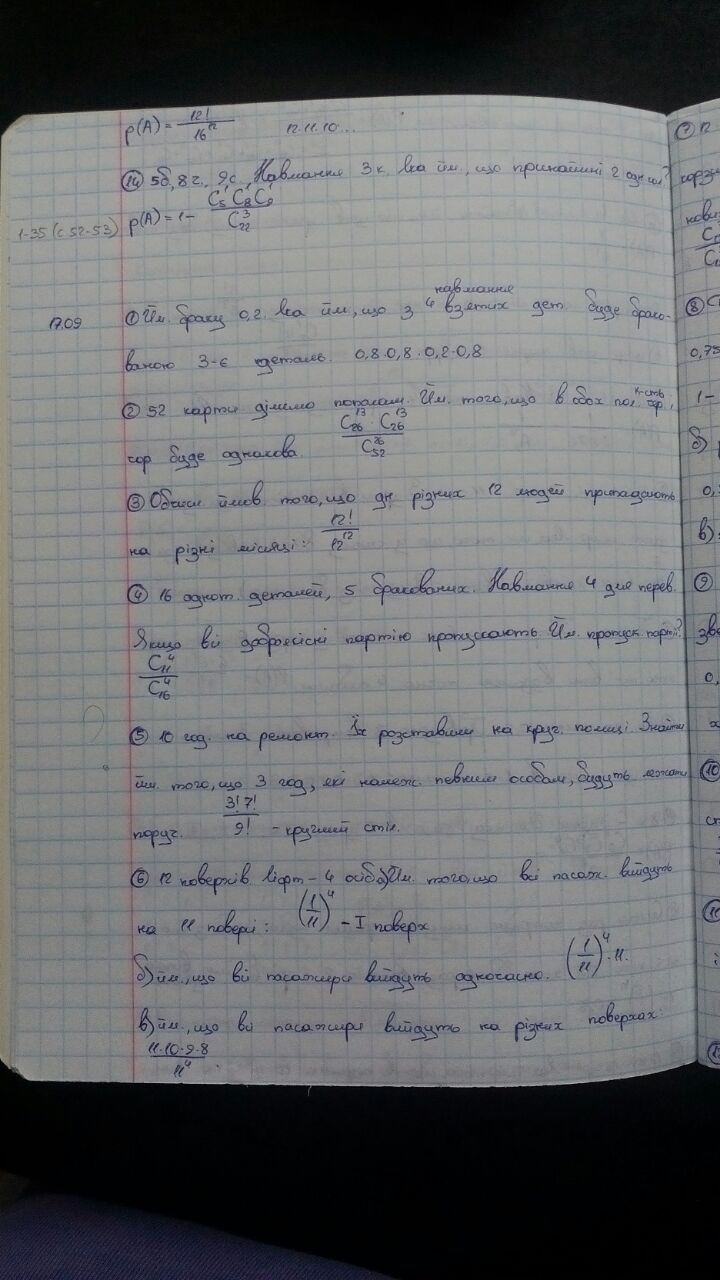 p(A) = 12! / 16^12    12.11.10...
⑭ 5б, 8г, 9с. Навмання 3к. Яка йм., що принаймні 2 одн ?
1-35 (с 52-53) p(A) = 1 - C_5^1 C_8^1 C_9^1 / C_22^3
17.09 ① Йм. браку 0,2. Яка йм., що з 4 навмання взятих дет. буде брако-
ваною 3-є деталь. 0,8·0,8·0,2·0,8
② 52 карти ділимо пополам. Йм. того, що в обох пол. к-сть чор,
чор буде однакова. C_26^13 · C_26^13 / C_52^26
③ Обчисл ймов. того, що дн різних 12 людей припадають
на різні місяці: 12! / 12^12
④ 16 однот. деталей, 5 бракованих. Навмання 4 для перев.
Якщо всі доброякісні партію пропускають. Йм. пропуск. партії?
C_11^4 / C_16^4
⑤ 10 год. на ремонт. Їх розставили на круг. полиці. Знайти
йм. того, що 3 год, які належ. певним особам, будуть лежати
поруч. 3! 7! / 9! - круглий стіл.
⑥ 12 поверхів ліфт - 4 особ а) Йм. того, що всі пасаж. вийдуть
на 11 повері: (1/11)^4 - I поверх
б) йм., що всі пасажири вийдуть одночасно. (1/11)^4 · 11.
в) йм., що всі пасажири вийдуть на різних поверхах:
11·10·9·8 / 11^4
⑦ 12
⑧
0,75
1-
б)
0,
в)
⑨
0,
⑩
⑪